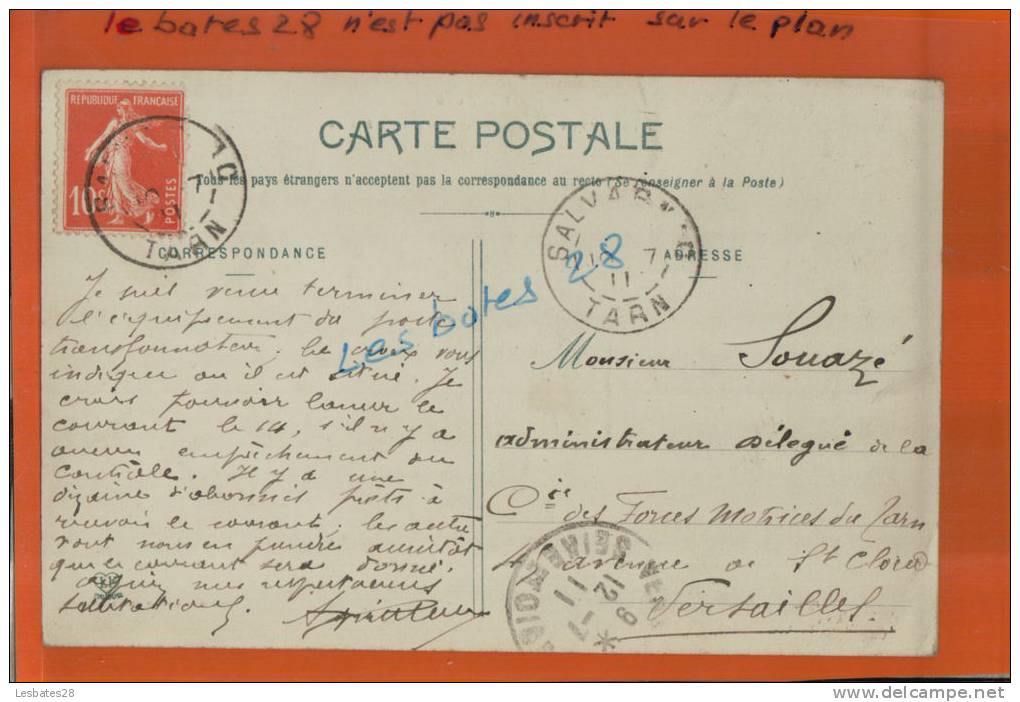 le bates 28 n'est pas inscrit sur le plan
REPUBLIQUE FRANÇAISE
10c
POSTES
TARN
CARTE POSTALE
Tous les pays étrangers n'acceptent pas la correspondance au recto (Se renseigner à la Poste)
CORRESPONDANCE
ADRESSE
SALVAGNAC
7
11
TARN
Les bates 28
Je suis venu terminer
l'équipement du poste
transformateur. La croix vous
indique où il est situé. Je
crois pouvoir lancer le
courant le 14, s'il n'y a
aucun empêchement du
contrôle. Il y a une
dizaine d'abonnés prêts à
recevoir le courant; les autres
vont nous en prendre aussitôt
que le courant sera donné.
Agréez mes respectueuses
salutations.
Monsieur Souazé
administrateur Délégué de la
Cie des Forces Motrices du Tarn
4 avenue de St Cloud
Versailles
Lesbates28
http://www.delcampe.net